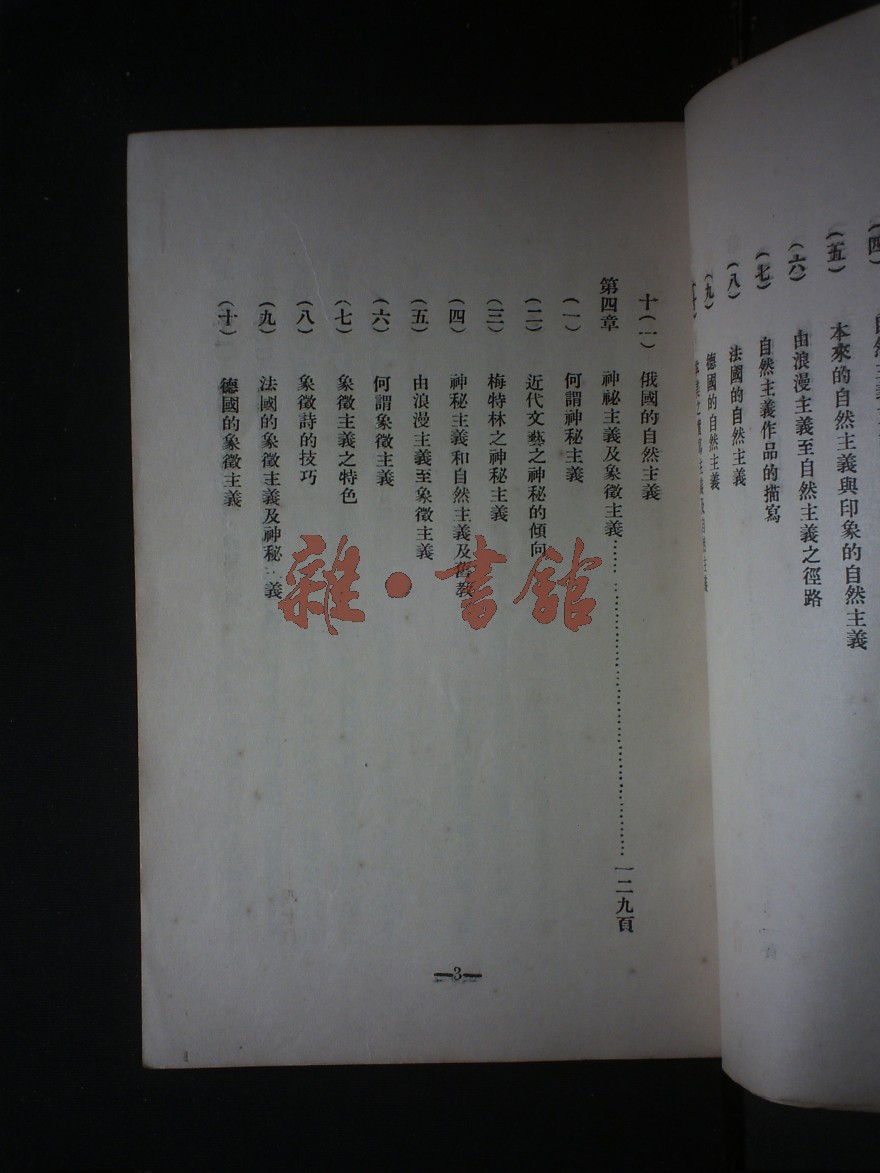 (五) 本來的自然主義與印象的自然主義
(六) 由浪漫主義至自然主義之徑路
(七) 自然主義作品的描寫
(八) 法國的自然主義
(九) 德國的自然主義
十(一) 俄國的自然主義
第四章 神祕主義及象徵主義…………………………一二九頁
(一) 何謂神秘主義
(二) 近代文藝之神秘的傾向
(三) 梅特林之神秘主義
(四) 神秘主義和自然主義及舊教
(五) 由浪漫主義至象徵主義
(六) 何謂象徵主義
(七) 象徵主義之特色
(八) 象徵詩的技巧
(九) 法國的象徵主義及神秘義
(十) 德國的象徵主義
—3—
雜·書館